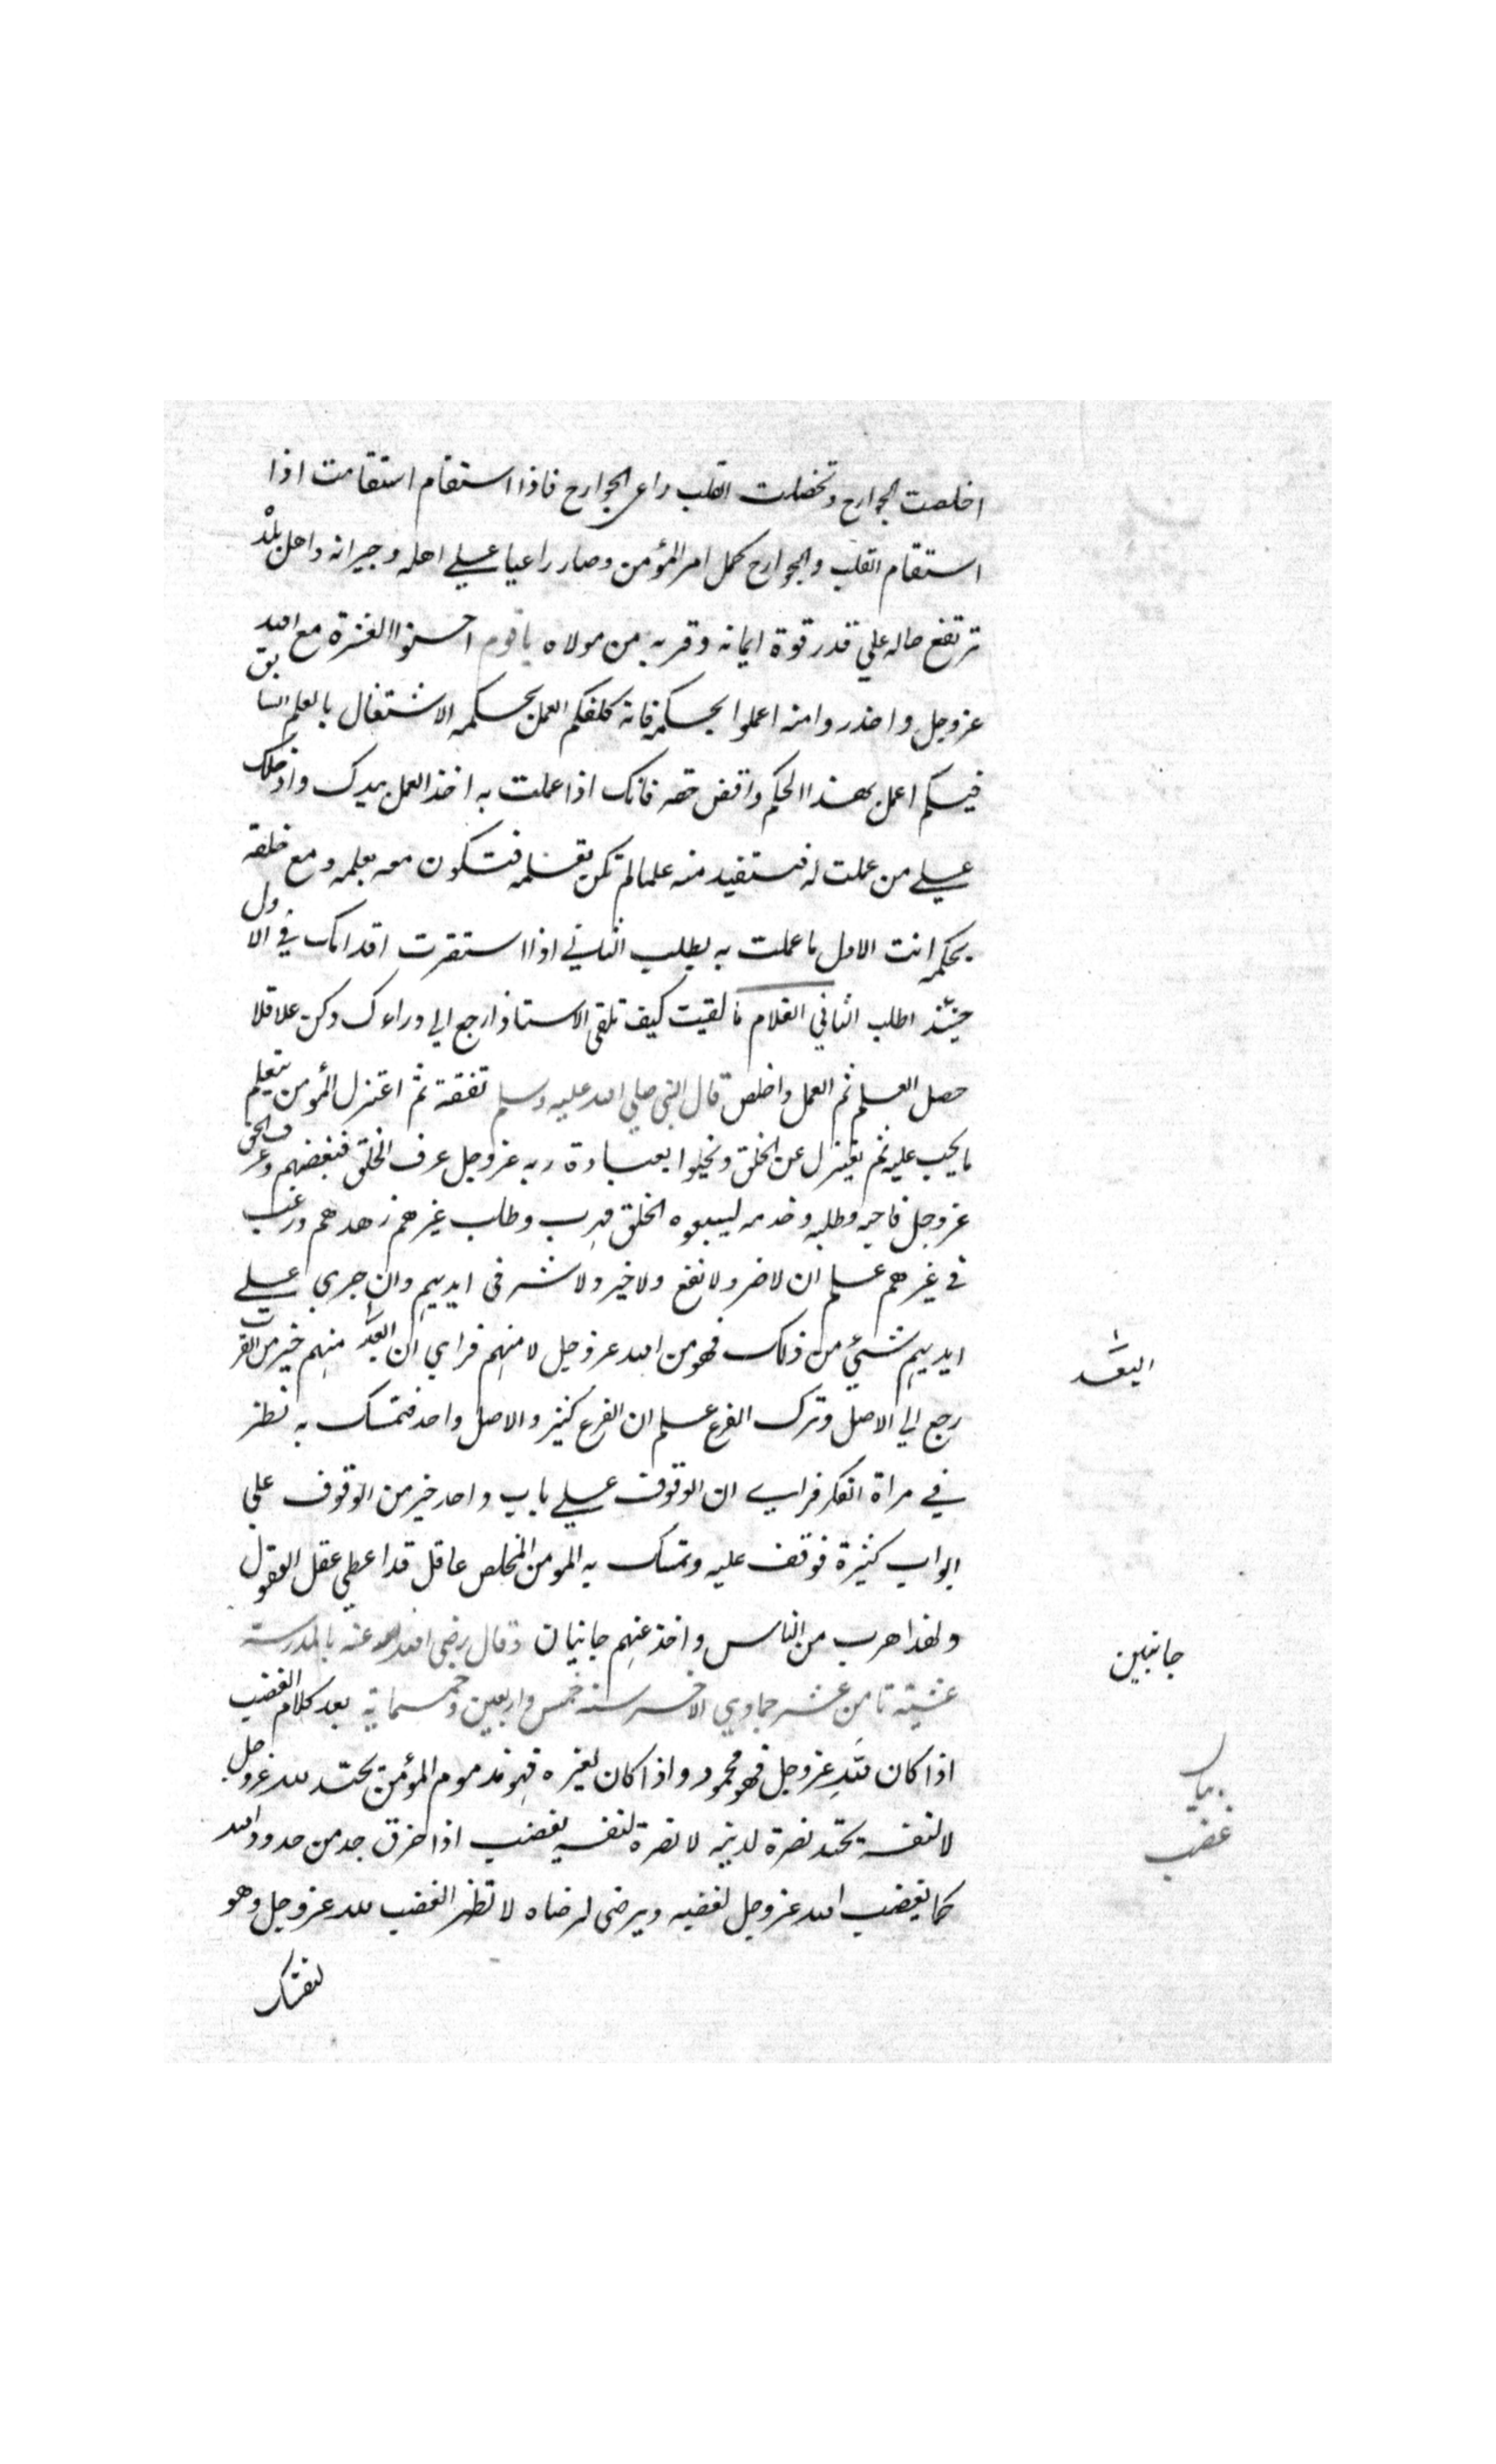 اخلصت الجوارح وتخصلت القلب راعي الجوارح فاذا استقام استقامت اذا
استقام القلب والجوارح كمل امر المؤمن وصار راعيا علي اهله وجيرانه واهل بلده
ترتفع حاله علي قدر قوة ايمانه وقربه من مولاه ياقوم احسنوا العشرة مع الله
عز وجل واحذروا منه اعملوا بحكمه فانه كلفكم العمل بحكمه الاشتغال بالعلم السابق
فيكم اعمل بهذا الحكم واقض حقه فانك اذا عملت به اخذ العمل بيدك وادخلك
علي من عملت له فتستفيد منه علما لم تكن تعلمه فتكون معه بعلمه ومع خلقه
بحكمه انت الاول ما عملت به يطلب الثاني اذا استقرت اقدامك في الاول
حينئذ اطلب الثاني الغلام ما لقيت كيف تلقي الاستاذ ارجع الي وراءك وكن عاقلا
حصل العلم ثم العمل واخلص قال النبي صلي الله عليه وسلم تفقه ثم اعتزل المؤمن يتعلم
ما يجب عليه ثم يعتزل عن الخلق ويخلوا بعبادة ربه عز وجل عرف الخلق فبغضهم وعرف الحق
عز وجل فاحبه وطلبه وخدمه ليبعوه الخلق فهرب وطلب غيرهم زهدهم ورغب
في غيرهم علم ان لا ضر ولا نفع ولا خير ولا شر في ايديهم وان جري علي
ايديهم شيء من ذلك فهو من الله عز وجل لا منهم فراي ان البعد منهم خير من القرب
رجع الي الاصل وترك الفرع علم ان الفرع كثير والاصل واحد فتمسك به نظر
في مراة الفكر فراي ان الوقوف علي باب واحد خير من الوقوف علي
ابواب كثيرة فوقف عليه وتمسك به المومن المخلص عاقل قد اعطي عقل العقول
ولهذا هرب من الناس واخذ عنهم جانبان وقال رضي الله عنه بالمدرسة
عشية ثامن عشر جمادي الاخر سنة خمس واربعين وخمسماية بعد كلام الغضب
اذا كان لله عز وجل فهو محمود واذا كان لغيره فهو مذموم المؤمن يحتد لله عز وجل
لا لنفسه يحتد نصرة لدينه لا نصرة لنفسه يغضب اذا خرق حد من حدود الله
كما يغضب الله عز وجل لغضبه ويرضي لرضاه لا تظهر الغضب لله عز وجل وهو
لنفسك
البعد
جانبين
بيان
غضب